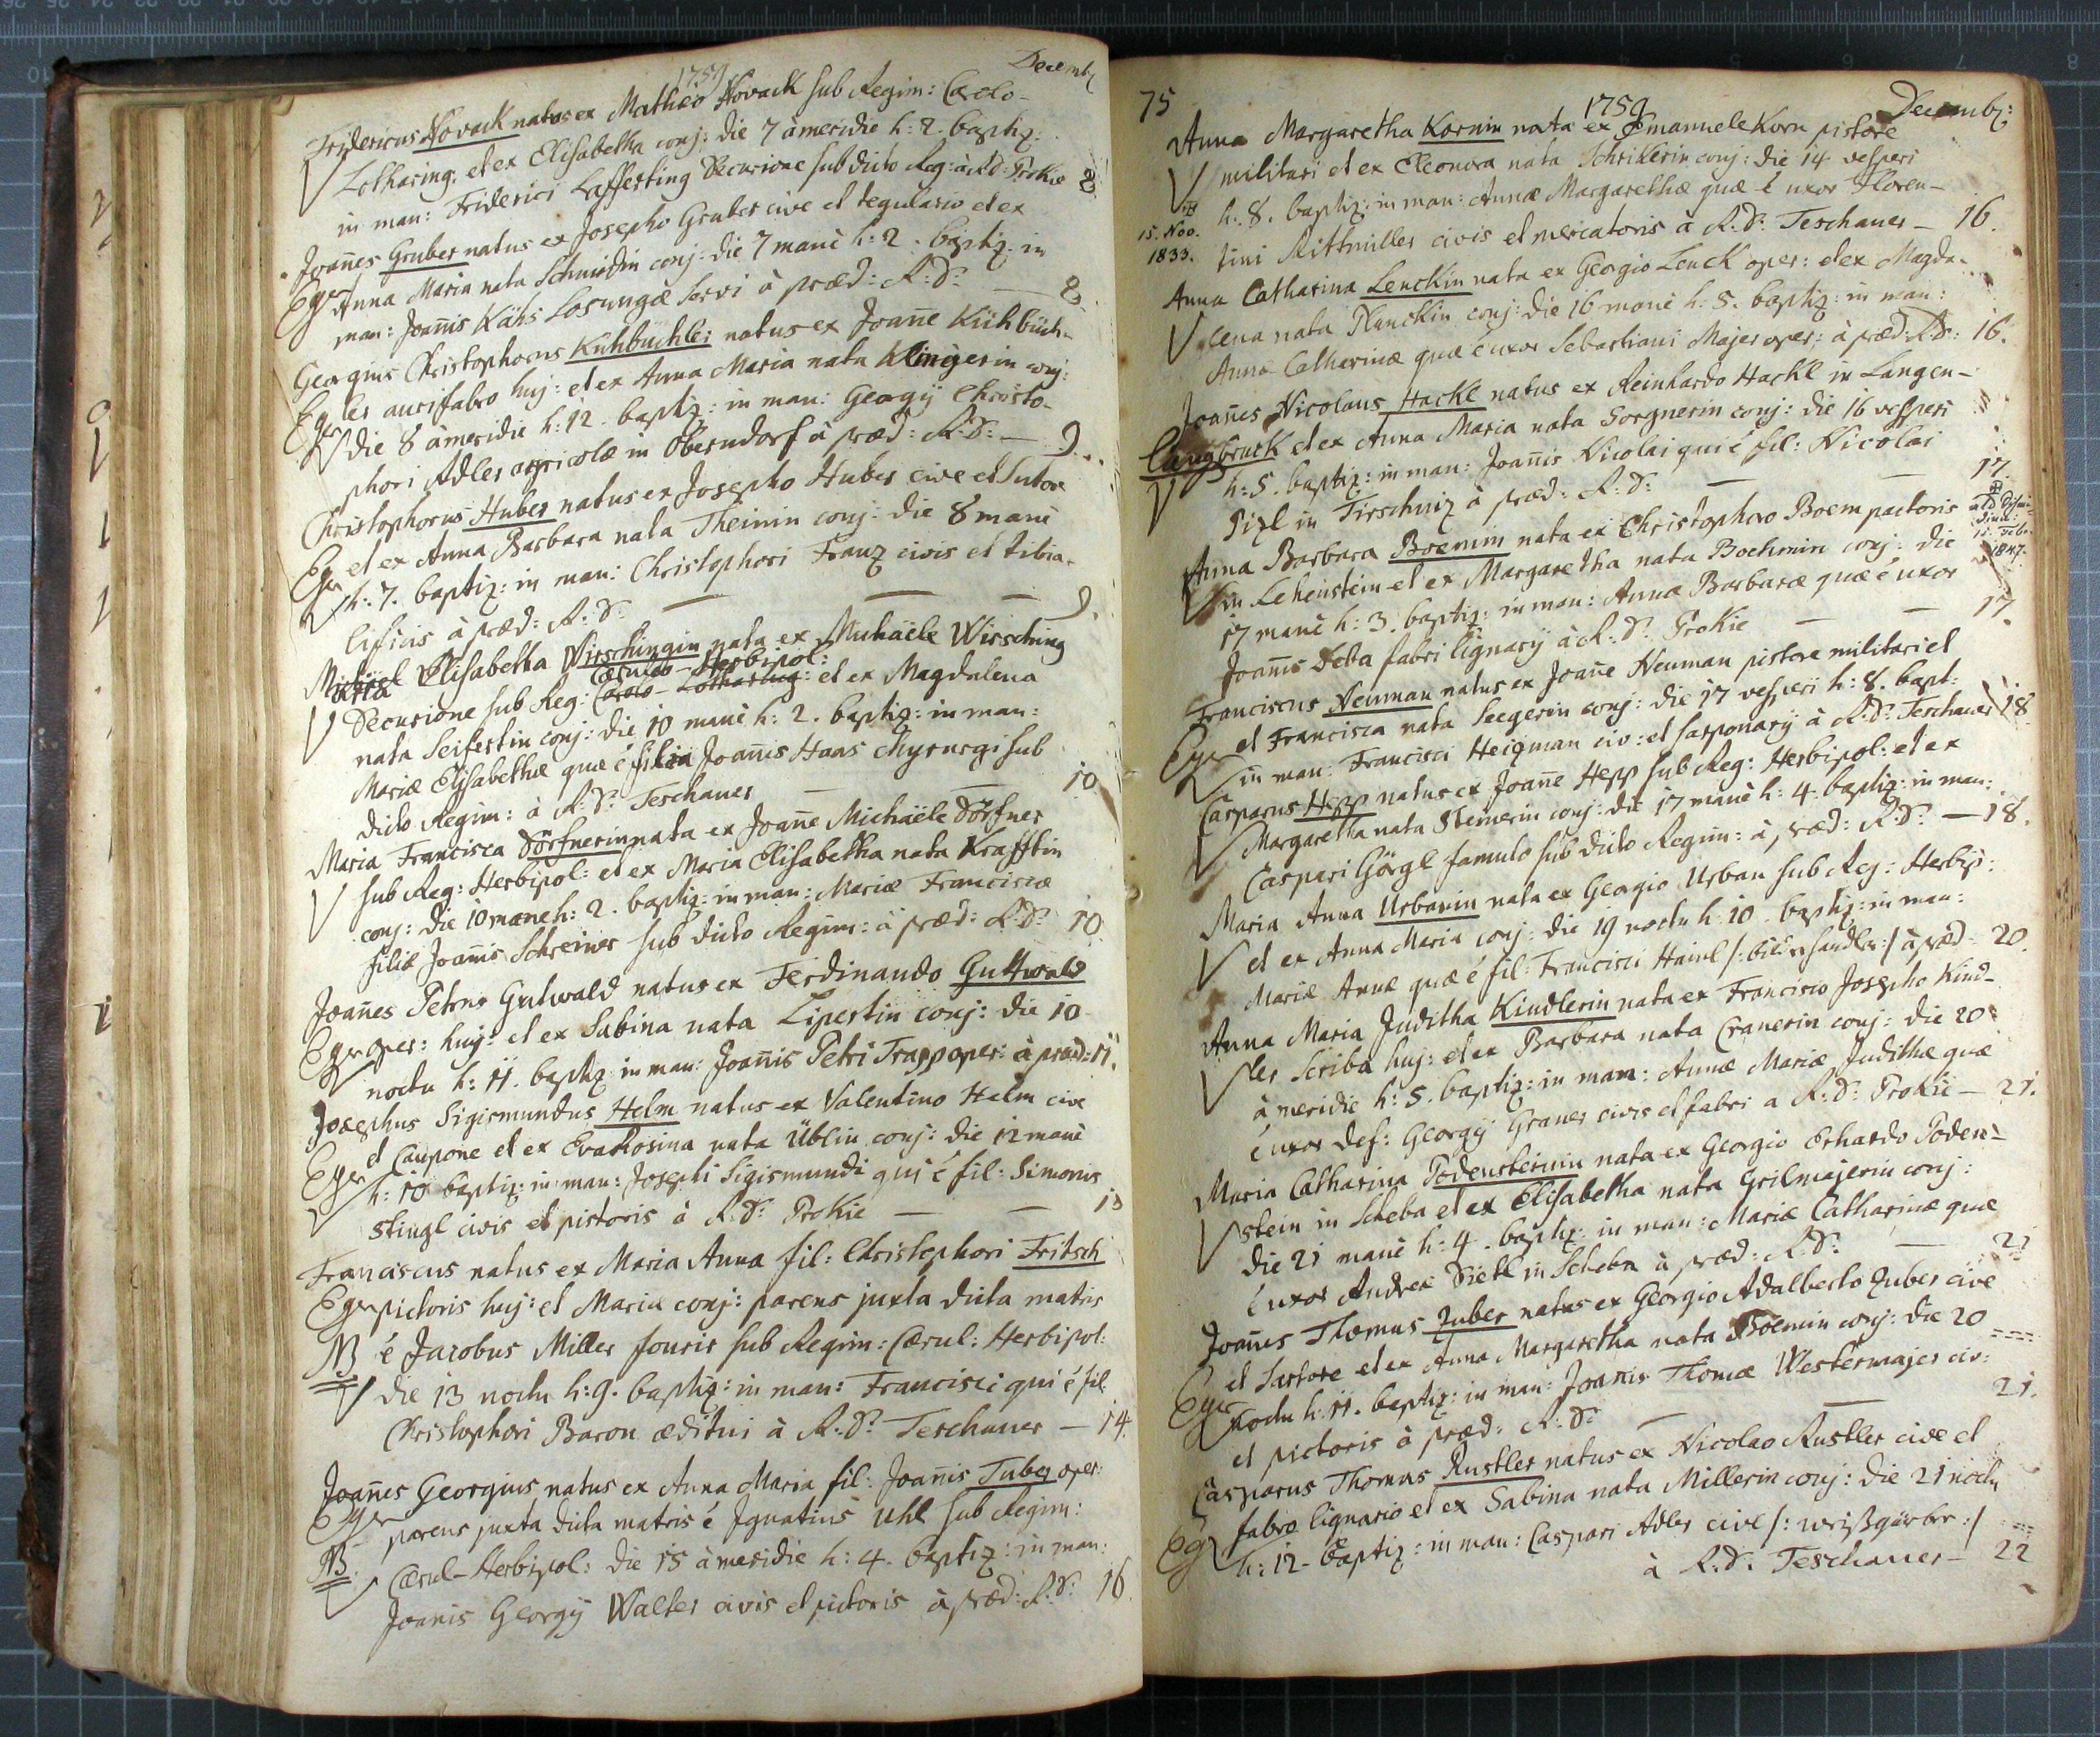 1759
Decemb:
Fridericus Novack natus ex Mathæo Novack sub Regim: Carolo-
Lotharing: et ex Elisabetha conj: die 7 à meridie h: 2. baptiz:
in man: Friderici Lafferting Decurione sub dicto Reg: à R:D: Prokie 8
Joañes Gruber natus ex Josepho Gruber cive et tegulario et ex
Eger Anna Maria nata Schmidin conj: die 7 manè h: 2. baptiz: in
man: Joañis Kähs Losungæ servi à præd: R:D: — 8.
Georgius Christophorus Kühbüchler natus ex Joañe Kühbüch-
Eger ler aurifabro huj: et ex Anna Maria nata Klingerin conj:
die 8 à meridie h: 12. baptiz: in man: Georgÿ Christo-
phori Adler agricolæ in Oberndorf à præd: R:D: — 9.
Christophorus Huber natus ex Josepho Huber cive et Sutore
Eger et ex Anna Barbara nata Theinin conj: die 8 manè
h: 7. baptiz: in man: Christophori Franz civis et tibia-
lificis à præd: R:D: — — — 9.
Michäel Elisabetha Wirschingin nata ex Michäele Wirsching
Cæruleo-Herbipol:
Decurione sub Reg: Carolo-Lotharing: et ex Magdalena
nata Seifertin conj: die 10 manè h: 2. baptiz: in man:
Mariæ Elisabethæ quæ é filia Joañis Haas Chyrurgi sub
dicto Regim: à R:D: Teschauer — — 10
Maria Francisca Dörfnerin nata ex Joañe Michäele Dörfner
sub Reg: Herbipol: et ex Maria Elisabetha nata Krafftin
conj: die 10 mane h: 2. baptiz: in man: Mariæ Franciscæ
filiæ Joañis Schreiner sub dicto Regim: à præd: R:D: 10
Joañes Petrus Gutwald natus ex Ferdinando Guttwald
Eger oper: huj: et ex Sabina nata Lipertin conj: die 10
noctu h: 11. baptiz: in man: Joañis Petri Trapp oper: à præd: 11.
Josephus Sigismundus Helm natus ex Valentino Helm cive
et Caupone et ex Eva Rosina nata Üblin conj: die 12 manè
Eger h: 10 baptiz: in man: Josephi Sigismundi qui é fil: Simonis
Stingl civis et pistoris à R:D: Prokie — — 13
Franciscus natus ex Maria Anna fil: Christophori Fritsch
Eger pictoris huj: et Mariæ conj: parens juxta dicta matris
NB é Jacobus Miller fourir sub Regim: Cærul: Herbipol:
die 13 noctu h: 9. baptiz: in man: Francisci qui é fil:
Christophori Baron æditui à R:D: Teschauer — 14.
Joañes Georgius natus ex Anna Maria fil: Joañis Tuber oper:
Eger parens juxta dicta matris é Ignatius Uhl sub Regim:
NB. Cærul-Herbipol: die 15 à meridie h: 4. baptiz: in man:
Joanis Georgÿ Walter civis et pictoris à præd: R:D: 16
75
1759
Decemb:
Anna Margaretha Kornin nata ex Emanuele Korn pistore
militari et ex Eleonora nata Schrikerin conj: die 14 vesperi
h: 8. baptiz: in man: Annæ Margarethæ quæ é uxor Floren-
15. Nov.
1833.
tini Rittmüller civis et mercatoris à R:D: Teschauer — 16.
Anna Catharina Lenckin nata ex Georgio Lenck oper: et ex Magda-
lena nata Planckin conj: die 16 manè h: 5. baptiz: in man:
Annæ Catharinæ quæ é uxor Sebastiani Majer oper: à præd: R:D: 16.
Joañes Nicolaus Hackl natus ex Reinhardo Hackl in Langen-
Langbruck et ex Anna Maria nata Sorgnerin conj: die 16 vesperi
h: 5. baptiz: in man: Joañis Nicolai qui é fil: Nicolai
Pixl in Tirschniz à præd: R:D: — — 17.
Anna Barbara Boemin nata ex Christophoro Boem pactoris
in Lehenstein et ex Margaretha nata Boehmin conj: die
15. Febr.
1847.
17 manè h: 3. baptiz: in man: Annæ Barbaræ quæ é uxor
Joañis Delta fabri lignarÿ à R:D: Prokie — — 17.
Franciscus Neuman natus ex Joañe Neuman pistore militari et
Eger et Francisca nata Seegerin conj: die 17 vesperi h: 8. bapt:
in man: Francisci Heigman civ: et saponarÿ à R:D: Teschauer 18
Casparus Hepp natus ex Joañe Hepp sub Reg: Herbipol: et ex
Margaretha nata Steinerin conj: die 17 manè h: 4 baptiz: in man:
Caspari Görgl famulo sub dicto Regim: à præd: R:D: — 18.
Maria Anna Urbanin nata ex Georgio Urban sub Reg: Herbip:
et ex Anna Maria conj: die 19 noctu h: 10. baptiz: in man:
Mariæ Annæ quæ é fil: Francisci Hainl /: bilderhandler :/ à præd: 20.
Anna Maria Juditha Kindlerin nata ex Francisco Josepho Kind-
ler Scriba huj: et ex Barbara nata Cranerin conj: die 20
à meridie h: 5. baptiz: in man: Annæ Mariæ Judithæ quæ
é uxor def: Georgÿ Graner civis et fabri a R:D: Prokie — 21.
Maria Catharina Podensteinin nata ex Georgio Erhardo Poden-
stein in Scheba et ex Elisabetha nata Grilmajerin conj:
die 21 manè h: 4. baptiz: in man: Mariæ Catharinæ quæ
é uxor Andreæ Dietl in Scheba à præd: R:D: — 21
Joañes Thomas Zuber natus ex Georgio Adalberto Zuber cive
et Sartore et ex Anna Margaretha nata Boemin conj: die 20
Eger noctu h: 11. baptiz: in man: Joañis Thomæ Westermajer civ:
et pictoris à præd: R:D: — — 21.
Casparus Thomas Rustler natus ex Nicolao Rustler cive et
fabro lignario et ex Sabina nata Millerin conj: die 21 noctu
Eg h: 12. baptiz: in man: Caspari Adler cive /: weißgärber :/
à R:D: Teschauer — 22